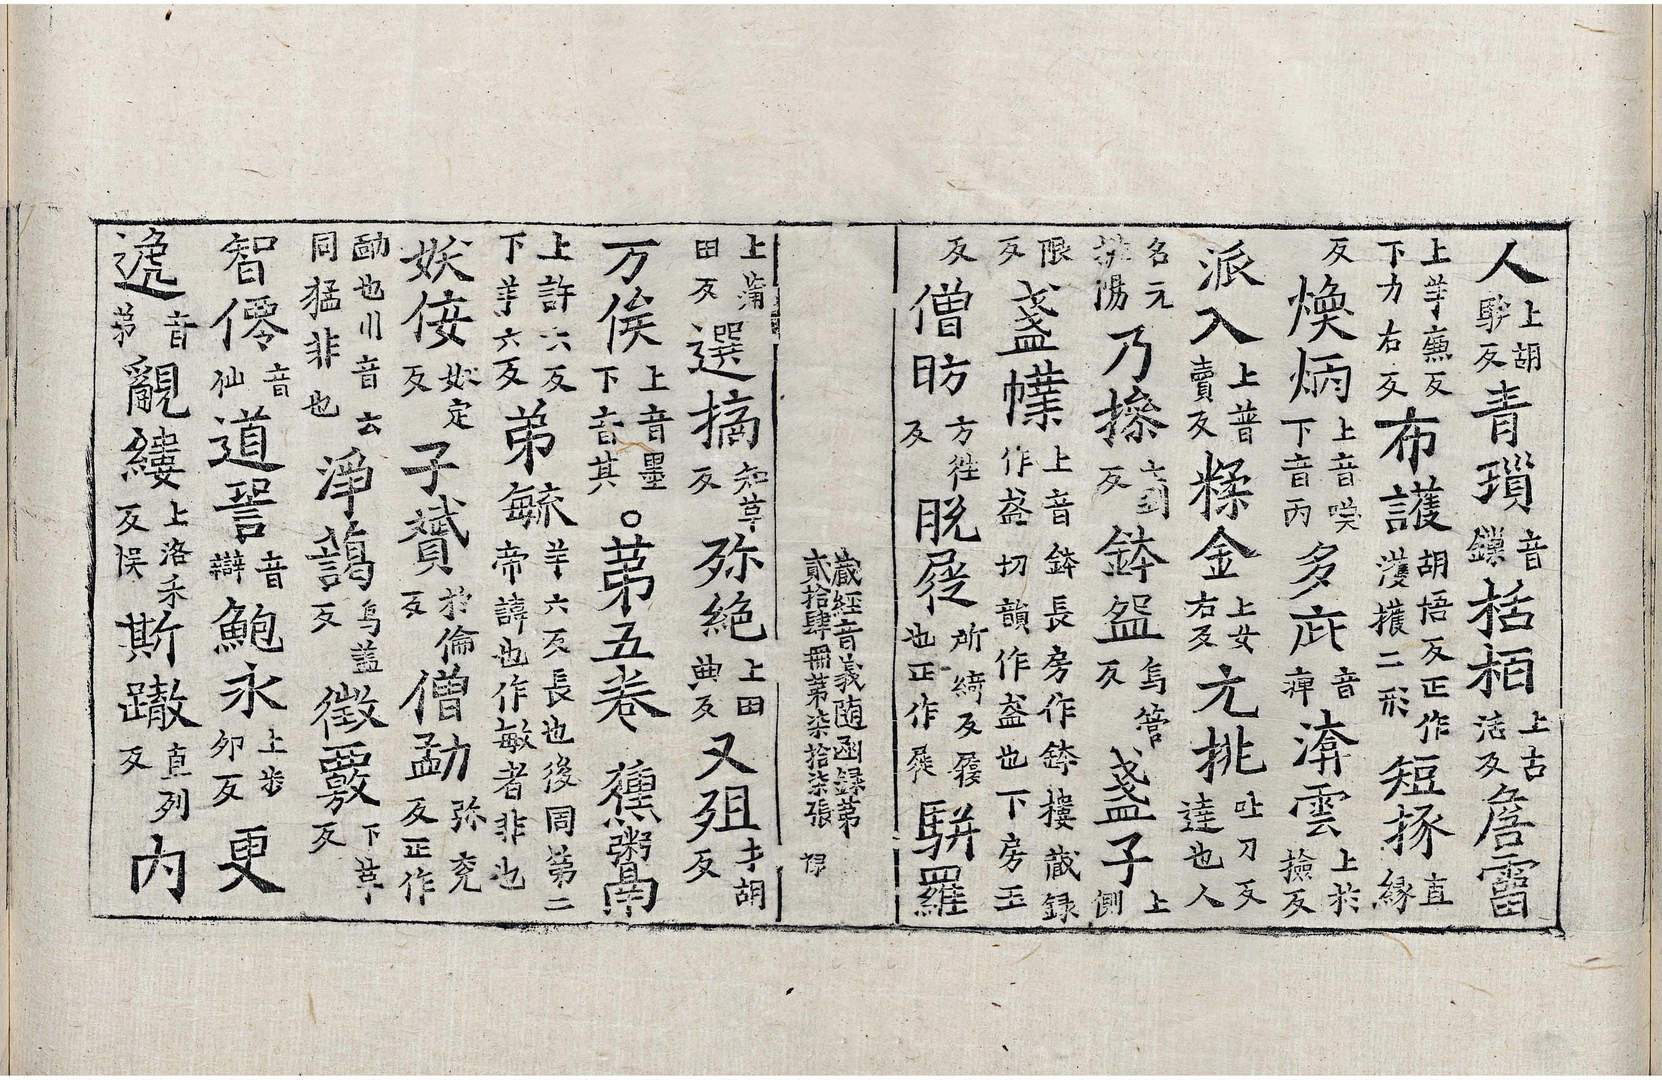 人上胡駍反青瑣音鏁栝栢上古活反詹霤
上羊廡反下力右反布護胡悟反正作濩擭二形短掾直緣
反煥炳上音喚下音丙多庛音痺渰雲上於撿反
派入上普賣反糅金上女右反亢挑吐刀反達也人
名元挑陽乃摻反鉢盌烏管反盞子上側
限反盞㡤上音鉢長房作鉢樓藏録作盋切韻作盋也下房玉
反僧昉方往反脱屣所綺反履也正作屣駢羅
藏經音義随函録第貳拾肆冊第柒拾柒張
上蒲田反選摘知革反殄絶上田典反又殂才胡反
万俟上音墨下音其○苐五卷蘸鬻
上許六反下羊六反苐毓羊六反長也後同第二帝諱也作敏者非也
妖佞奴定反子贇於倫反僧勐弥兖反正作
勔也川音云同猛非也淨藹烏蓋反徵覈下革反
智僊音仙道㖼音辯鮑永上步卯反更
遞音苐覶縷上洛禾反悮斯轍直列反内